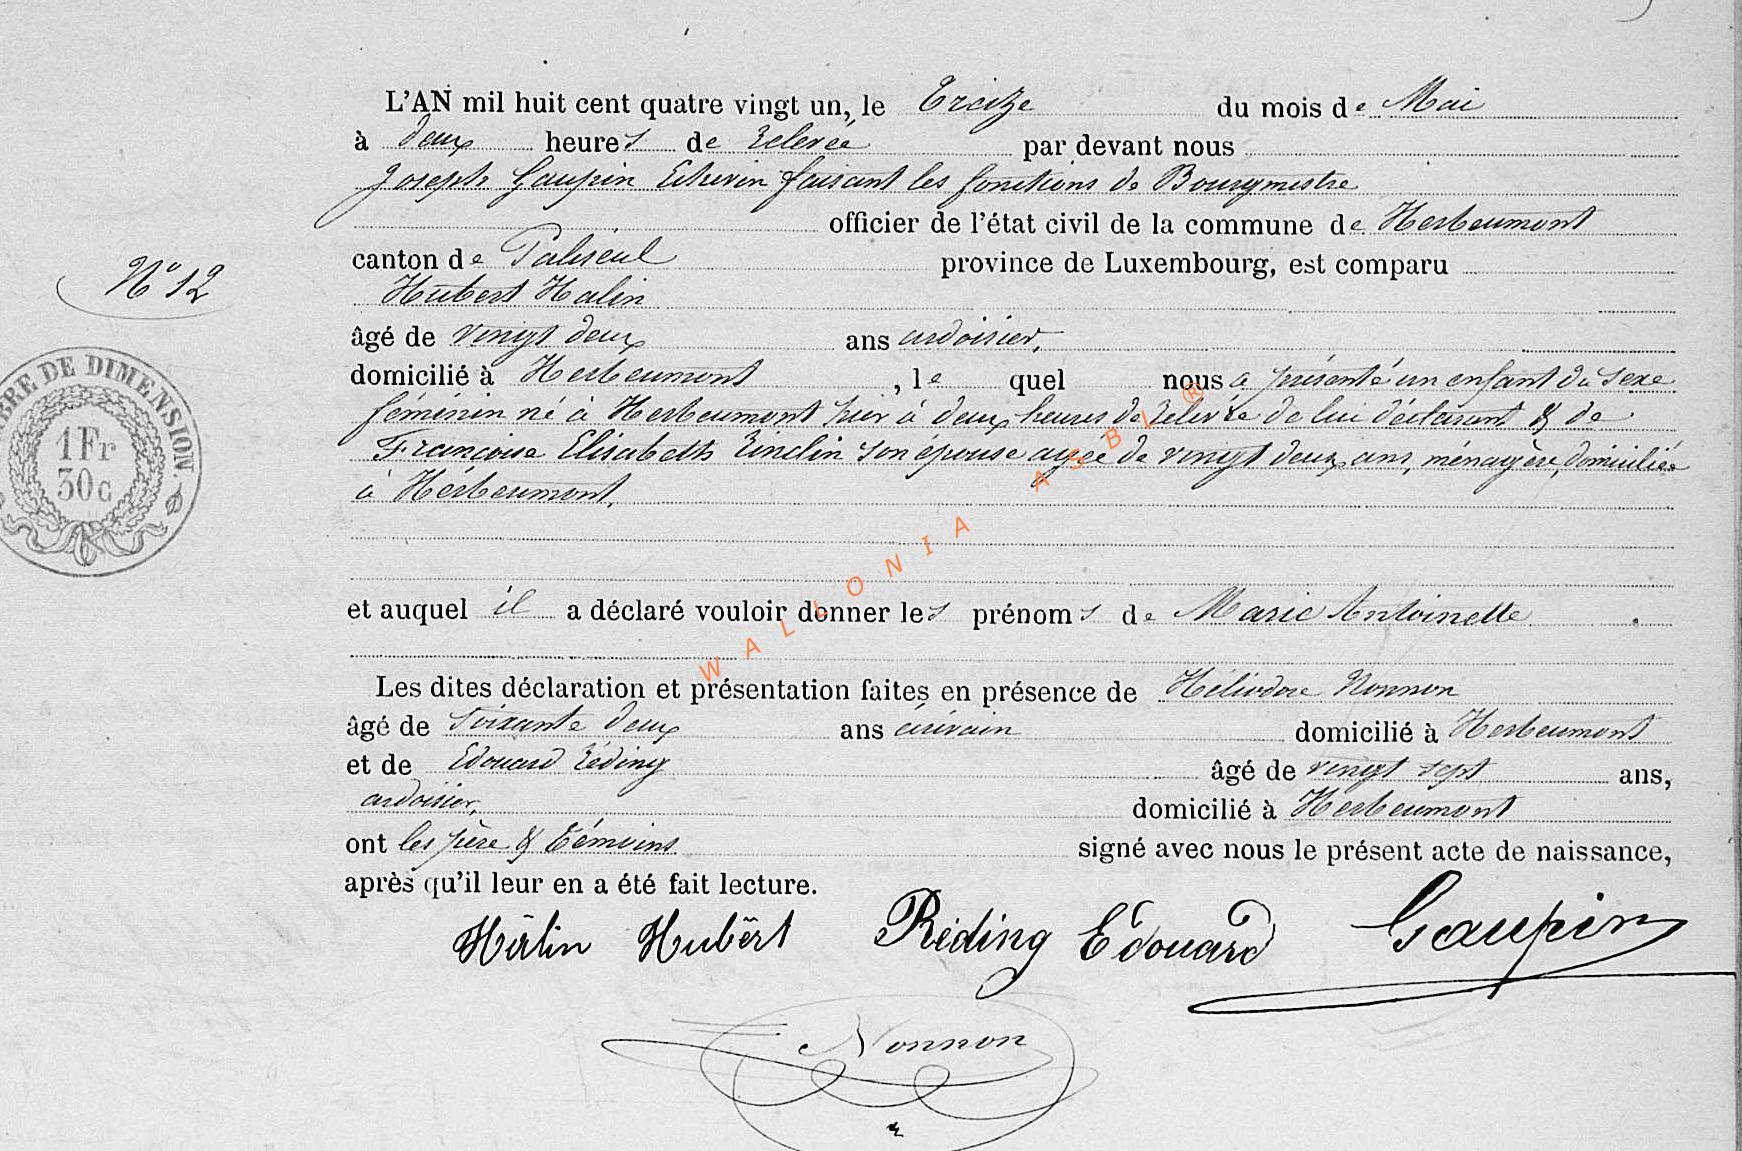 L'AN mil huit cent quatre vingt un, le Treize du mois de Mai
à deux heures de relevée par devant nous
Joseph Gaupin Echevin faisant les fonctions de Bourgmestre
officier de l'état civil de la commune de Herbeumont
canton de Paliseul province de Luxembourg, est comparu
N° 12
Hubert Halin
âgé de vingt deux ans ardoisier,
domicilié à Herbeumont, lequel nous a présenté un enfant du sexe
féminin né à Herbeumont hier à deux heures de relevée de lui déclarant & de
Françoise Elisabeth son épouse agée de vingt deux ans, ménagère, domiciliée
à Herbeumont,
TIMBRE DE DIMENSION
1 Fr
30 c
et auquel il a déclaré vouloir donner les prénoms de Marie Antoinette
Les dites déclaration et présentation faites en présence de Héliodore Nonnon
âgé de soixante deux ans écrivain domicilié à Herbeumont
et de Edouard Réding âgé de vingt sept ans,
ardoisier, domicilié à Herbeumont
ont les père & témoins signé avec nous le présent acte de naissance,
après qu'il leur en a été fait lecture.
Halin Hubert Réding Edouard Gaupin
Nonnon
WALLONIA ASBL ®